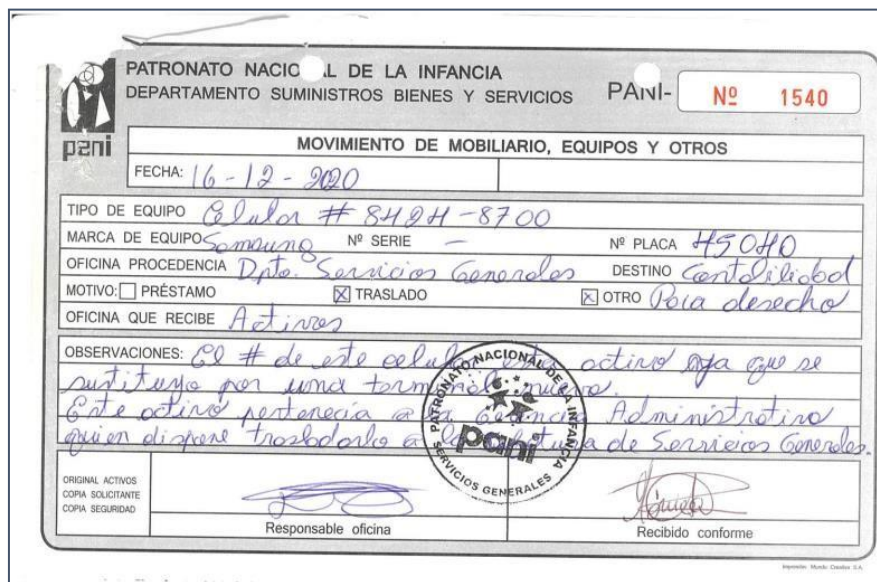 PATRONATO NACIONAL DE LA INFANCIA
DEPARTAMENTO SUMINISTROS BIENES Y SERVICIOS
PANI- Nº 1540
pani
MOVIMIENTO DE MOBILIARIO, EQUIPOS Y OTROS
FECHA: 16-12-2020
TIPO DE EQUIPO Celular # 8424-8700
MARCA DE EQUIPO Samsung Nº SERIE - Nº PLACA 45040
OFICINA PROCEDENCIA Dpto. Servicios Generales DESTINO Contabilidad
MOTIVO: PRÉSTAMO X TRASLADO X OTRO Para desecho
OFICINA QUE RECIBE Activos
OBSERVACIONES: El # de este celular esta activo ya que se
sustituyo por una terminal nueva.
Este activo pertenecía a la Gerencia Administrativa
quien dispone trasladarlo a la Jefatura de Servicios Generales.
PATRONATO NACIONAL DE LA INFANCIA
pani
SERVICIOS GENERALES
ORIGINAL ACTIVOS
COPIA SOLICITANTE
COPIA SEGURIDAD
Responsable oficina
Recibido conforme